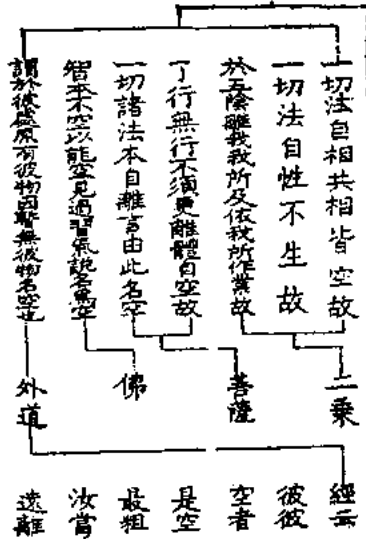 一切法自相共相皆空故
一切法自性不生故
於五陰離我我所及依我所作業故
了行無行不須更離體自空故
一切諸法本自離言由此名空
智本不空以能空見過習氣說名為空
謂於彼處原有彼物因暫無彼物名空也
二乘
菩薩
佛
外道
經云
彼彼
空者
是空
最粗
汝當
遠離